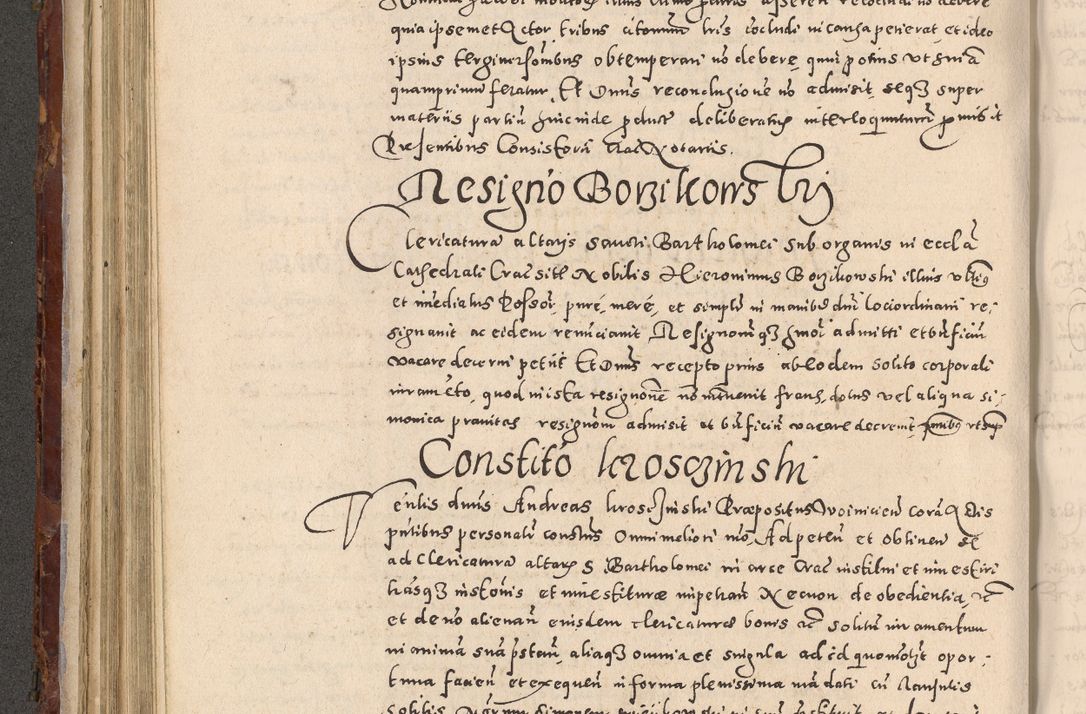 quia ipsemet Actor tribus citationum lris cocludi in causa petierat, et ideo
ipsius tergiversationibus obtemperari no debere, quin potius ut sniā
quamprimum feratur. Et Dnus reconclusione no admisit, seqz super
materiis partiū hincinde product deliberatis interloquuturū promisit
Præsentibus Consistorii Crac Notariis.
Resigno Borzikowskij
Clericaturā altaris sancti Bartholomei sub organis in eccla
Cathedrali Crac site Nobilis Hieronimus Borzikowski illius ultius
et imediatus Possor, pure, mere, et simplr in manibus dni loci ordinarii re-
signavit ac eidem renunciavit Resignationē qz hmoi admitti et bnficiū
vacare decerni petiit Et Dnus recepto prius ab eodem solito corporali
iuramēto, quod in ista resignone no intervenit fraus, dolus vel aliqua si-
monica pravitas resignom admisit et bnficiū vacare decrevit, pntibus ut sup
Constito kroscziński
Venlis dnus Andreas krosczinski Præpositus Woiniciēn corā Actis
pntibus personalr constus Omni meliori mo, Ad peten et obtinen se
ad Clericaturā altaris S Bartholomei in arce Crac institui et investiri
lrasqz instonis et investituræ impetran Necnon de obedientia, etc
et de no alienan eiusdem clericaturæ bonis etc solitū iuramentum
in animā suā pstan, aliaqz omnia et singula ad id quomolt opor-
tuna facien et exequen in forma plenissima mādati cū clausulis